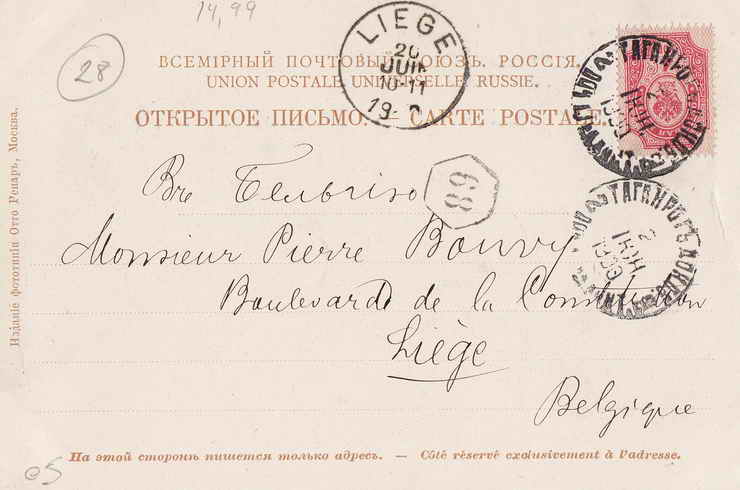 14,99
28
LIEGE
20
JUIN
10-11
19
ВСЕМІРНЫЙ ПОЧТОВЫЙ СОЮЗЪ. РОССІЯ.
UNION POSTALE UNIVERSELLE RUSSIE.
ОТКРЫТОЕ ПИСЬМО. — CARTE POSTALE.
ТАГАНРОГЪ
ІЮН
Въ Бельгію
89
Monsieur Pierre Bouvy
ТАГАНРОГЪ ДОНЦ.
2
ІЮН
Boulevard de la Constitution
Liège
Belgique
Изданіе фототипіи Отто Ренаръ, Москва.
На этой сторонѣ пишется только адресъ. — Côté réservé exclusivement à l'adresse.